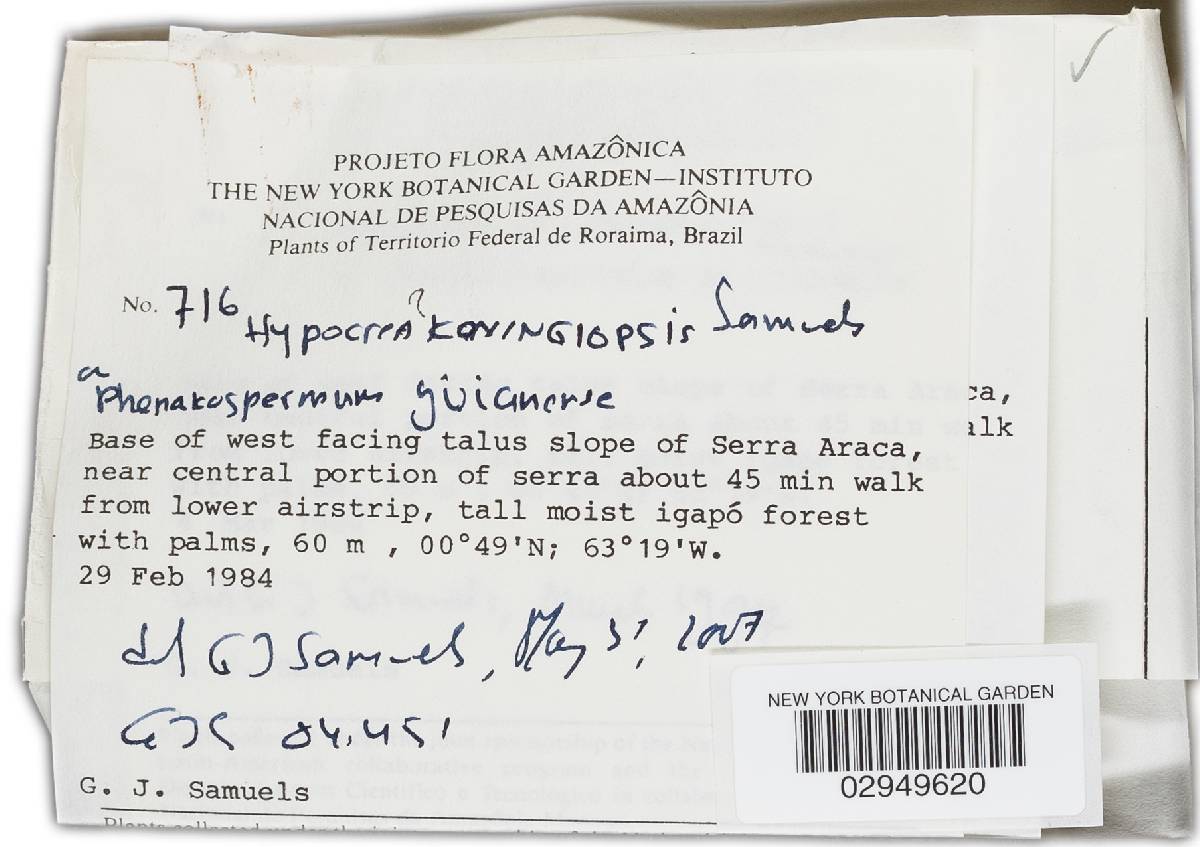 PROJETO FLORA AMAZÔNICA
THE NEW YORK BOTANICAL GARDEN—INSTITUTO
NACIONAL DE PESQUISAS DA AMAZÔNIA
Plants of Territorio Federal de Roraima, Brazil
No. 716 Hypocrea ? KONINGIOPSIS Samuels
Phenakospermum guianense
ca,
Base of west facing talus slope of Serra Araca,
alk
near central portion of serra about 45 min walk
from lower airstrip, tall moist igapó forest
with palms, 60 m , 00°49'N; 63°19'W.
29 Feb 1984
G J Samuels, May 31, 2007
GJS 84.451
NEW YORK BOTANICAL GARDEN
02949620
G. J. Samuels